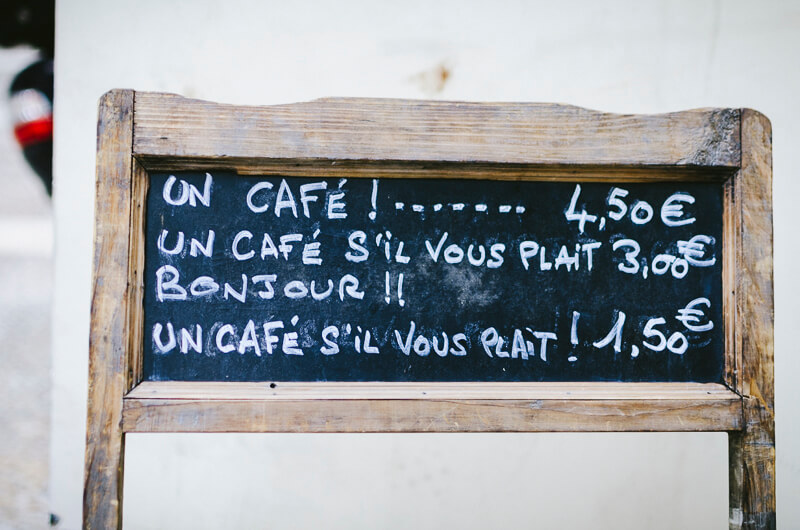 UN CAFÉ ! ........ 4,50€
UN CAFÉ S'iL VOUS PLAIT 3,00€
BONJOUR !!
UN CAFÉ S'iL VOUS PLAiT ! 1,50€